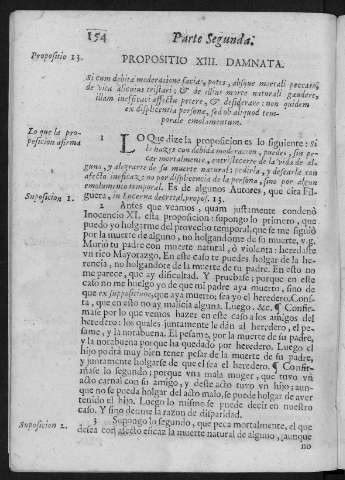 154 Parte Segunda.
Propositio 13.
PROPOSITIO XIII. DAMNATA.
Si cum debita moderatione facias, potes, absque mortali peccato,
de vita alicuius tristari; & de illius morte naturali gaudere,
illam inefficaci affectu petere, & desiderare: non quidem
ex displicentia personæ, sed ob aliquod tem-
porale emolumentum.
Lo que la pro-
posicion afirma
1 LO Que dize la proposicion es lo siguiente: Si
lo hazes con debida moderacion, puedes, sin pe-
car mortalmente, entristecerte de la vida de al-
guno, y alegrarte de su muerte natural: pedirla, y desearla con
afecto ineficaz; no por displicencia de la persona, sino por algun
emolumento temporal. Es de algunos Autores, que cita Fil-
guera, in Lucerna decretal, propos. 13.
Suposicion 1.
2 Antes que veamos, quam justamente condenò
Inocencio XI. esta proposicion: supongo lo primero, que
puedo yo holgarme del provecho temporal, que se me siguiò
por la muerte de alguno, no holgandome de su muerte, v.g.
Muriò tu padre con muerte natural, ò violenta: heredaste
vn rico Mayorazgo. En este caso te puedes holgar de la he-
rencia, no holgandote de la muerte de tu padre. En esto no
me parece, que ay dificultad. Y pruebase; porque en este
caso no me huelgo yo de que mi padre aya muerto, sino de
que ex suppositione, que aya muerto; sea yo el heredero. Cons-
ta, que en esto no ay malicia alguna. Luego, &c. ¶ Confir-
mase por lo que vemos hazer en este caso à los amigos del
heredero: los quales juntamente le dàn al heredero, el pe-
same, y la norabuena. El pesame, por la muerte de su padre,
y la norabuena porque ha quedado por heredero. Luego el
hijo podrà muy bien tener pesar de la muerte de su padre,
y juntamente holgarse de que èl sea el heredero. ¶ Confir-
mase lo segundo; porque vna mala muger, que tuvo vn
acto carnal con su amigo, y deste acto tuvo vn hijo; aun-
que no se pueda holgar del acto malo, se puede holgar de aver
tenido el hijo. Luego lo mismo se puede decir en nuestro
caso. Y sino deme la razon de disparidad.
Suposicion 2.
3 Supongo lo segundo, que peca mortalmente, el que
desea con afecto eficaz la muerte natural de alguno, aunque
no